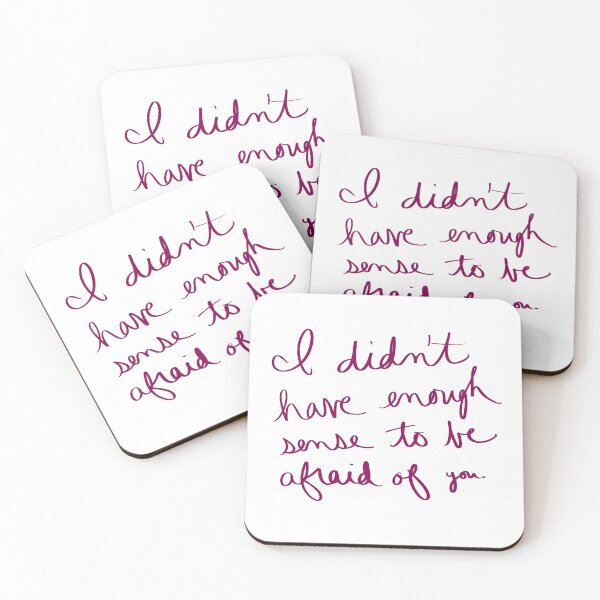 I didn't
have enough
be
I didn't
have enough
sense to be
afraid of you.
I didn't
have enough
sense to be
afraid of
I didn't
have enough
sense to be
afraid of you.